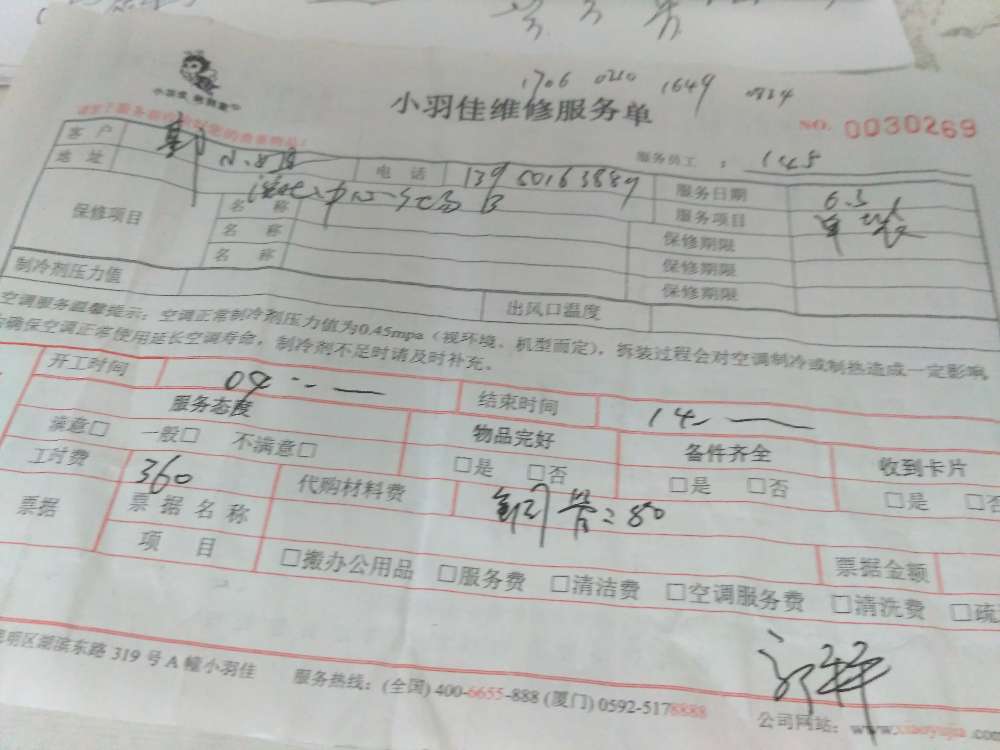 1706 0210 1649 0834
小羽佳维修服务单
NO. 0030269
服务员工: 145
客户 郭 电话 13950163889 服务日期 6.3
地址 服务项目 单装
保修项目 名称 保修期限
名称 保修期限
名称 保修期限
制冷剂压力值 出风口温度
空调服务温馨提示:空调正常制冷剂压力值为0.45mpa(视环境、机型而定),拆装过程会对空调制冷或制热造成一定影响
确保空调正常使用延长空调寿命,制冷剂不足时请及时补充。
开工时间 09 结束时间 14
服务态度 物品完好 备件齐全 收到卡片
满意□ 一般□ 不满意□ □是 □否 □是 □否 □是 □否
工付费 360 代购材料费 铜管=80
票据 票据名称 票据金额
项目 □搬办公用品 □服务费 □清洁费 □空调服务费 □清洗费 □疏
明区湖滨东路 319 号 A 幢小羽佳 服务热线:(全国) 400-6655-888 (厦门) 0592-5178888 公司网站:www.xiaoyujia.com